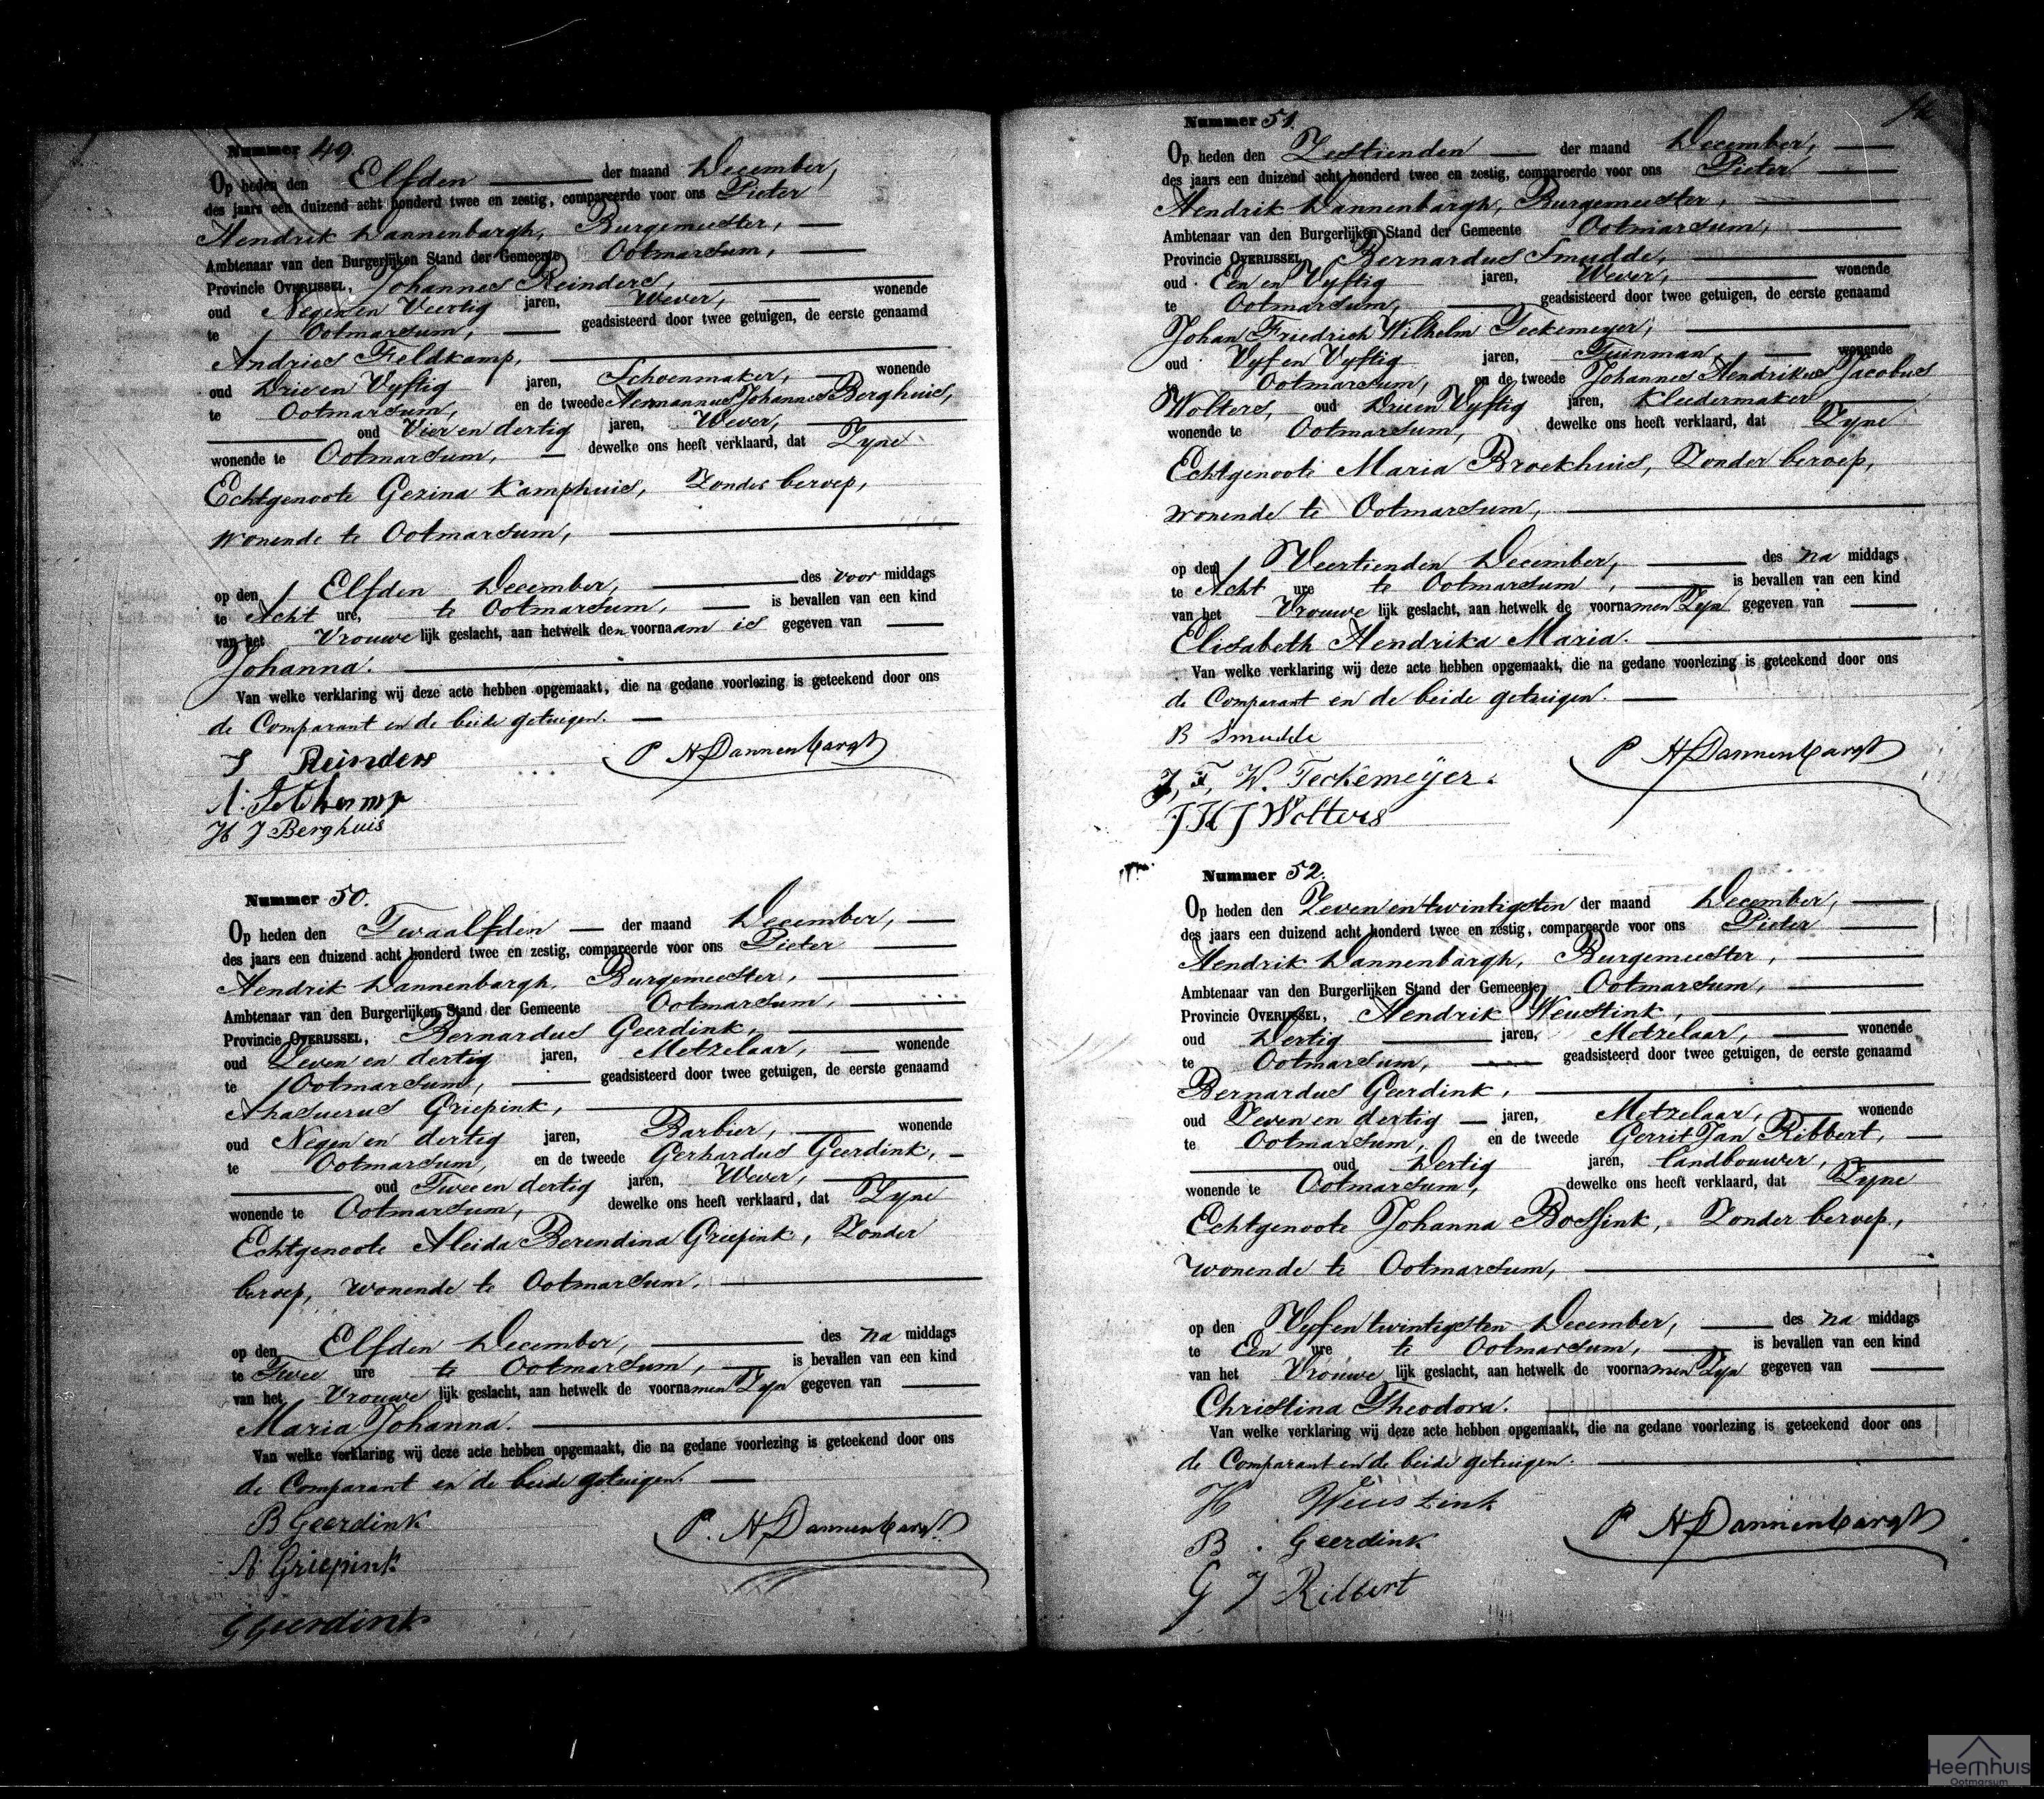 Nummer 49.
Op heden den Elfden der maand December,
des jaars een duizend acht honderd twee en zestig, compareerde voor ons Pieter
Hendrik Dannenbargh, Burgemeester,
Ambtenaar van den Burgerlijken Stand der Gemeente Ootmarsum,
Provincie OVERIJSSEL, Johannes Reinders,
oud Negen en Veertig jaren, Wever, wonende
te Ootmarsum, geadsisteerd door twee getuigen, de eerste genaamd
Andries Feldkamp,
oud Drie en Vyftig jaren, Schoenmaker, wonende
te Ootmarsum, en de tweede Hermannus Johannes Berghuis,
oud Vier en dertig jaren, Wever,
wonende te Ootmarsum, dewelke ons heeft verklaard, dat Zyne
Echtgenoote Gezina Kamphuis, Zonder beroep,
wonende te Ootmarsum,
op den Elfden December, des voor middags
te Acht ure, te Ootmarsum, is bevallen van een kind
van het Vrouwe lijk geslacht, aan hetwelk den voornaam is gegeven van
Johanna.
Van welke verklaring wij deze acte hebben opgemaakt, die na gedane voorlezing is geteekend door ons
de Comparant en de beide getuigen.
J Reinders
P H Dannenbargh
A. Feldkamp
H J Berghuis
Nummer 50.
Op heden den Twaalfden der maand December,
des jaars een duizend acht honderd twee en zestig, compareerde voor ons Pieter
Hendrik Dannenbargh, Burgemeester,
Ambtenaar van den Burgerlijken Stand der Gemeente Ootmarsum,
Provincie OVERIJSSEL, Bernardus Geerdink,
oud Zeven en dertig jaren, Metzelaar, wonende
te Ootmarsum, geadsisteerd door twee getuigen, de eerste genaamd
Ahasuerus Griepink,
oud Negen en dertig jaren, Barbier, wonende
te Ootmarsum, en de tweede Gerhardus Geerdink,
oud Twee en dertig jaren, Wever,
wonende te Ootmarsum, dewelke ons heeft verklaard, dat Zyne
Echtgenoote Aleida Berendina Griepink, Zonder
beroep, wonende te Ootmarsum,
op den Elfden December, des na middags
te Twee ure te Ootmarsum, is bevallen van een kind
van het Vrouwe lijk geslacht, aan hetwelk de voornamen Zyn gegeven van
Maria Johanna.
Van welke verklaring wij deze acte hebben opgemaakt, die na gedane voorlezing is geteekend door ons
de Comparant en de beide getuigen.
B Geerdink
P. H Dannenbargh
A Griepink
G Geerdink
Nummer 51.
Op heden den Zestienden der maand December,
des jaars een duizend acht honderd twee en zestig, compareerde voor ons Pieter
Hendrik Dannenbargh, Burgemeester,
Ambtenaar van den Burgerlijken Stand der Gemeente Ootmarsum,
Provincie OVERIJSSEL, Bernardus Smudde,
oud Een en Vyftig jaren, Wever, wonende
te Ootmarsum, geadsisteerd door twee getuigen, de eerste genaamd
Johan Friedrich Wilhelm Teckemeyer,
oud Vyf en Vyftig jaren, Tuinman wonende
te Ootmarsum, en de tweede Johannes Hendrikus Jacobus
Wolters, oud Drie en Vyftig jaren, Kleedermaker,
wonende te Ootmarsum, dewelke ons heeft verklaard, dat Zyne
Echtgenoote Maria Broekhuis, Zonder beroep,
wonende te Ootmarsum,
op den Veertienden December, des na middags
te Acht ure te Ootmarsum, is bevallen van een kind
van het Vrouwe lijk geslacht, aan hetwelk de voornamen Zyn gegeven van
Elisabeth Hendrika Maria.
Van welke verklaring wij deze acte hebben opgemaakt, die na gedane voorlezing is geteekend door ons
de Comparant en de beide getuigen.
B Smudde
P H Dannenbargh
J, F, W. Teckemeyer.
J H J Wolters
Nummer 52.
Op heden den Zeven en twintigsten der maand December,
des jaars een duizend acht honderd twee en zestig, compareerde voor ons Pieter
Hendrik Dannenbargh, Burgemeester,
Ambtenaar van den Burgerlijken Stand der Gemeente Ootmarsum,
Provincie OVERIJSSEL, Hendrik Weustink,
oud Dertig jaren, Metzelaar, wonende
te Ootmarsum, geadsisteerd door twee getuigen, de eerste genaamd
Bernardus Geerdink,
oud Zeven en dertig jaren, Metzelaar, wonende
te Ootmarsum, en de tweede Gerrit Jan Ribbert,
oud Dertig jaren, landbouwer,
wonende te Ootmarsum, dewelke ons heeft verklaard, dat Zyne
Echtgenoote Johanna Bossink, Zonder beroep,
wonende te Ootmarsum,
op den Vyf en twintigsten December, des na middags
te Een ure te Ootmarsum, is bevallen van een kind
van het Vrouwe lijk geslacht, aan hetwelk de voornamen Zyn gegeven van
Christina Theodora.
Van welke verklaring wij deze acte hebben opgemaakt, die na gedane voorlezing is geteekend door ons
de Comparant en de beide getuigen.
H Weustink
P H Dannenbargh
B. Geerdink
G J Ribbert
Heemhuis
Ootmarsum